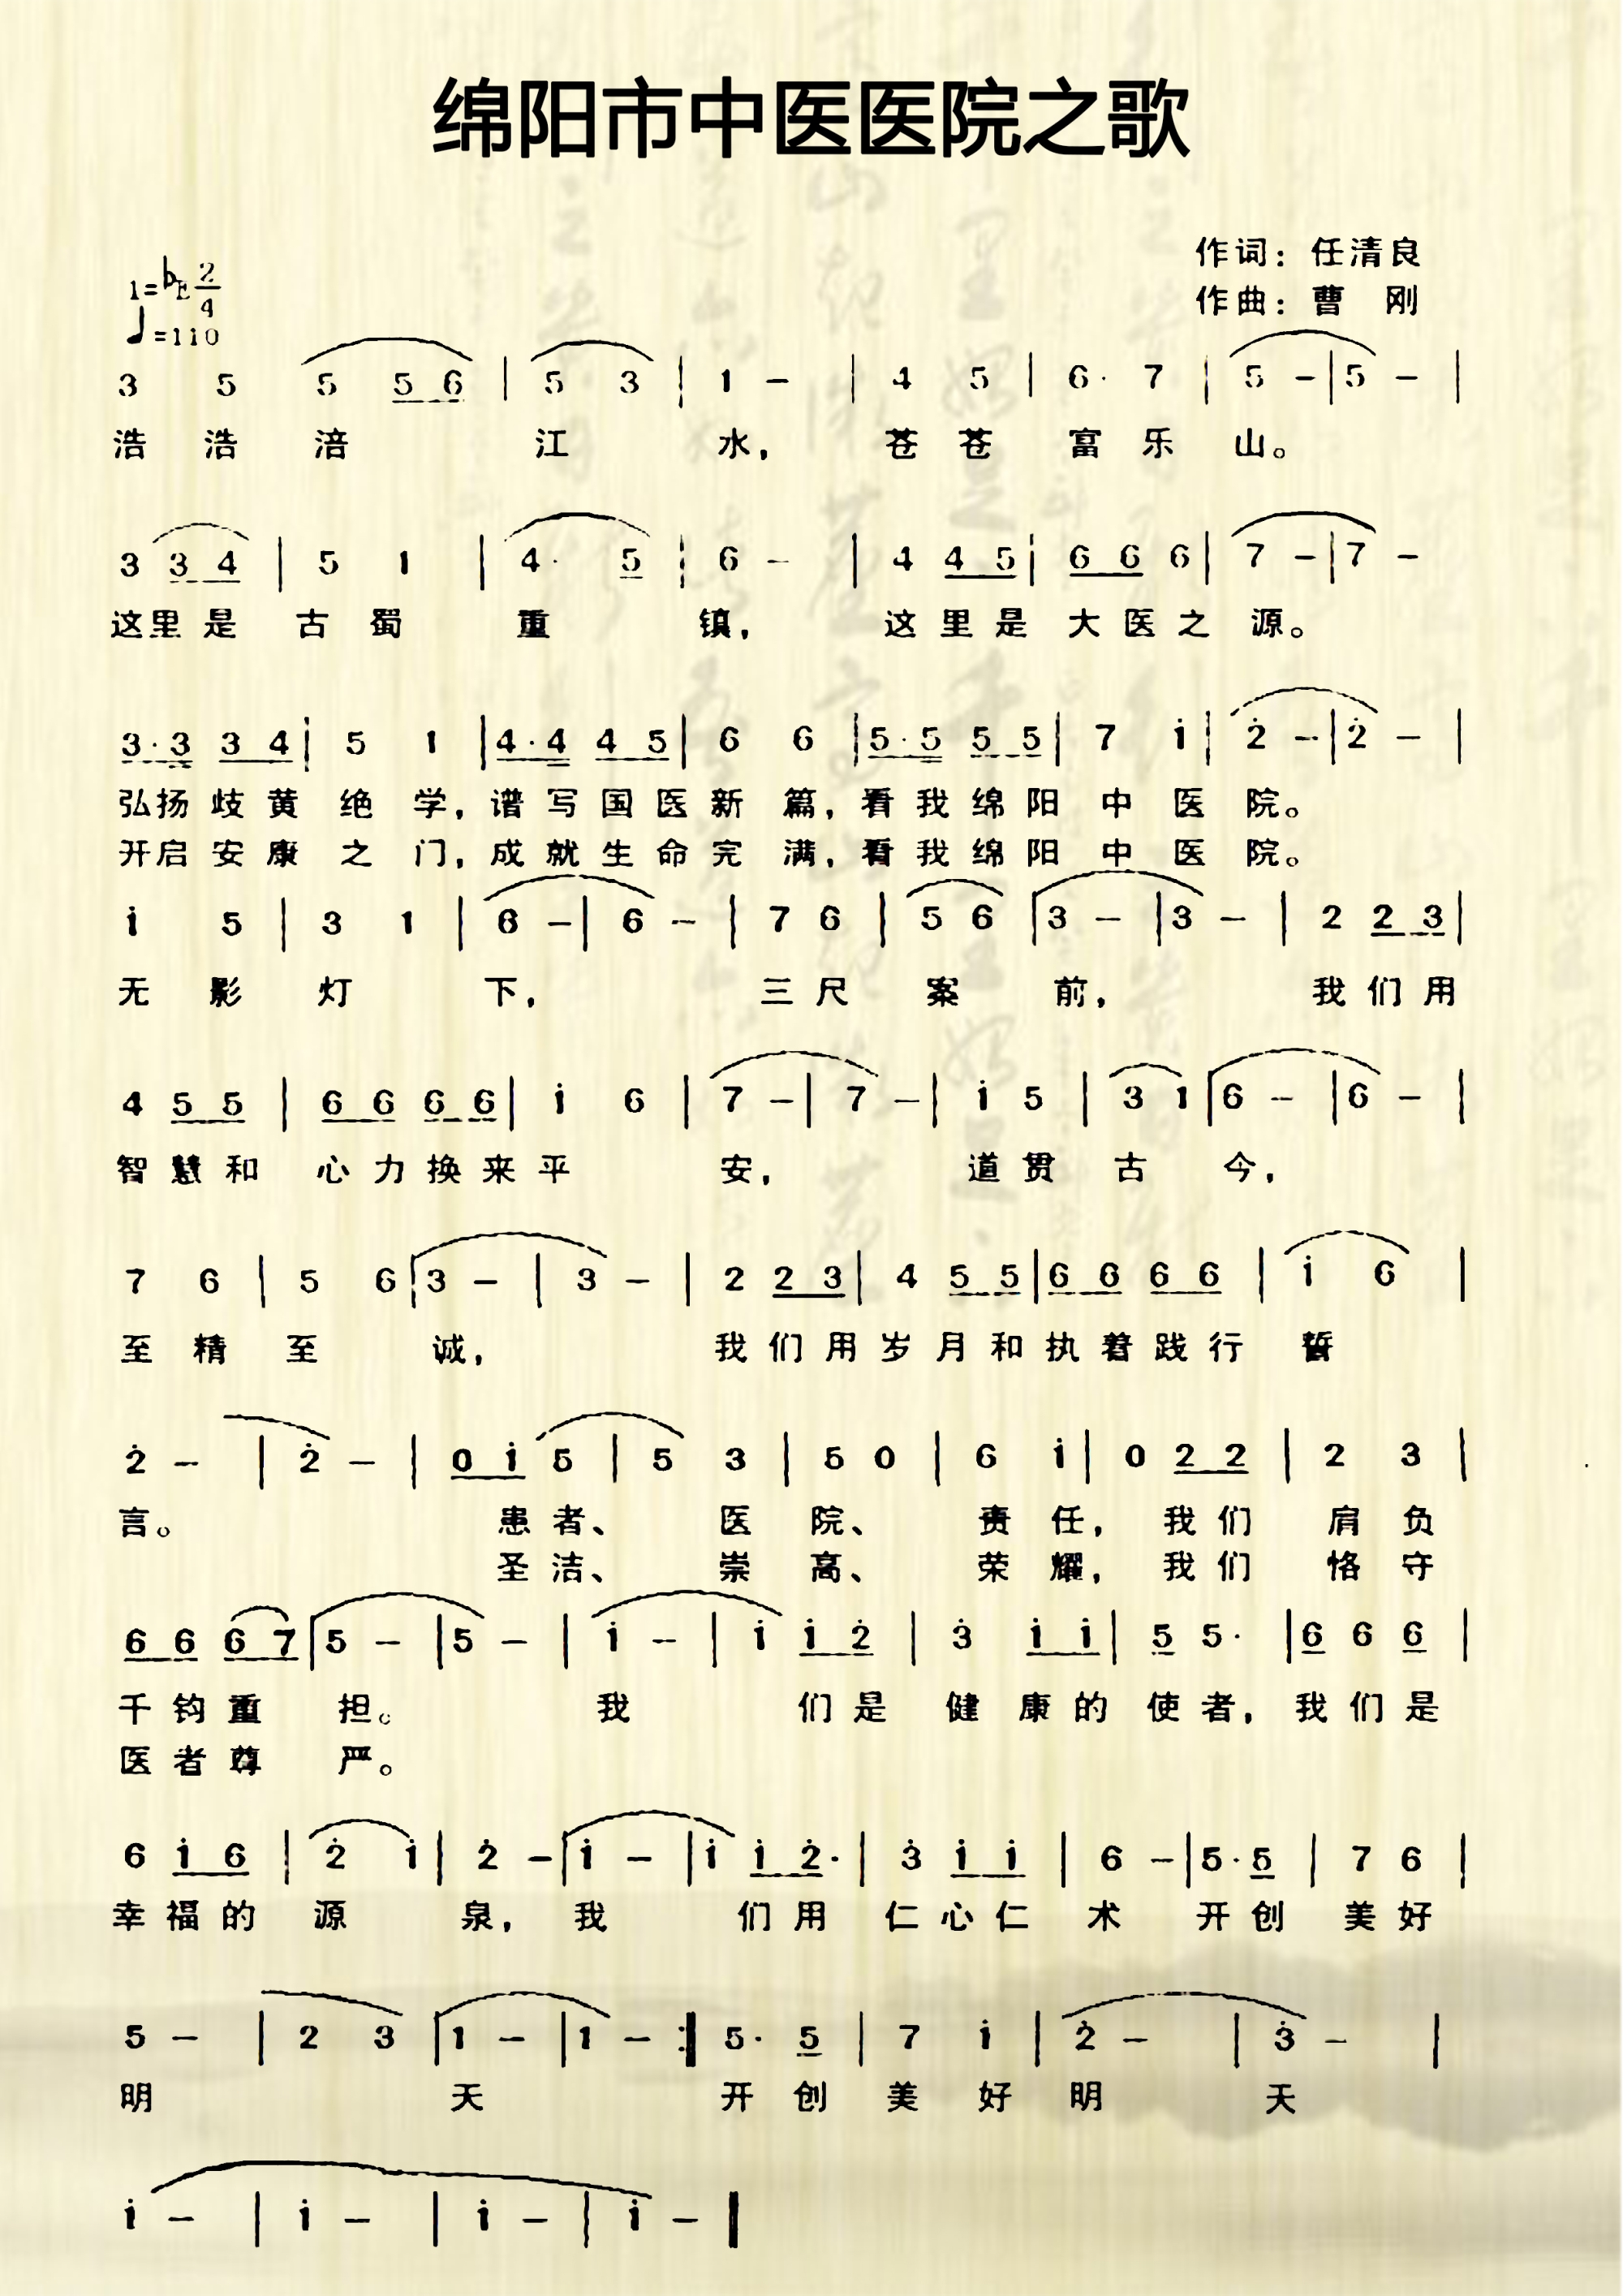 绵阳市中医医院之歌
作词：任清良
1=bE 2/4
作曲：曹 刚
♩=110
3 5 5 5 6 | 5 3 | 1 - | 4 5 | 6· 7 | 5 - | 5 - |
浩 浩 涪 江 水， 苍 苍 富 乐 山。
3 3 4 | 5 1 | 4· 5 | 6 - | 4 4 5 | 6 6 6 | 7 - | 7 -
这里是 古 蜀 重 镇， 这里是 大医之 源。
3·3 3 4 | 5 1 | 4·4 4 5 | 6 6 | 5·5 5 5 | 7 i | 2̇ - | 2̇ - |
弘扬歧黄 绝 学，谱写国医新 篇，看我绵阳 中 医 院。
开启安康 之 门，成就生命完 满，看我绵阳 中 医 院。
i 5 | 3 1 | 6 - | 6 - | 7 6 | 5 6 | 3 - | 3 - | 2 2 3 |
无 影 灯 下， 三 尺 案 前， 我们用
4 5 5 | 6 6 6 6 | i 6 | 7 - | 7 - | i 5 | 3 1 | 6 - | 6 - |
智慧和 心力换来平 安， 道贯 古 今，
7 6 | 5 6 | 3 - | 3 - | 2 2 3 | 4 5 5 | 6 6 6 6 | i 6 |
至 精 至 诚， 我们用岁月和执着践行 誓
2̇ - | 2̇ - | 0 i 5 | 5 3 | 5 0 | 6 i | 0 2 2 | 2 3 |
言。 患者、 医 院、 责 任， 我们 肩 负
圣洁、 崇 高、 荣 耀， 我们 恪 守
6 6 6 7 | 5 - | 5 - | i - | i i 2̇ | 3̇ i i | 5 5· | 6 6 6 |
千钧重 担。 我 们是 健 康的 使者，我们是
医者尊 严。
6 i 6 | 2̇ i | 2̇ - | i - | i i 2̇· | 3̇ i i | 6 - | 5·5 | 7 6 |
幸福的 源 泉， 我 们用 仁心仁 术 开创 美好
5 - | 2 3 | 1 - | 1 - :| 5· 5 | 7 i | 2̇ - | 3̇ - |
明 天 开 创 美 好 明 天
i - | i - | i - | i - |